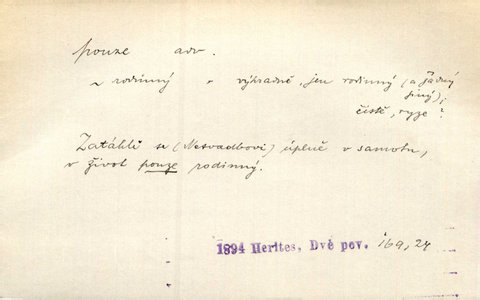 pouze adv.
~ rodinný = výhradně, jen rodinný (a žádný
jiný);
čistě, ryze?
Zatáhli se (Nesvadbovi) úplně v samotu,
v život pouze rodinný.
1894 Herites, Dvě pov. 169, 24